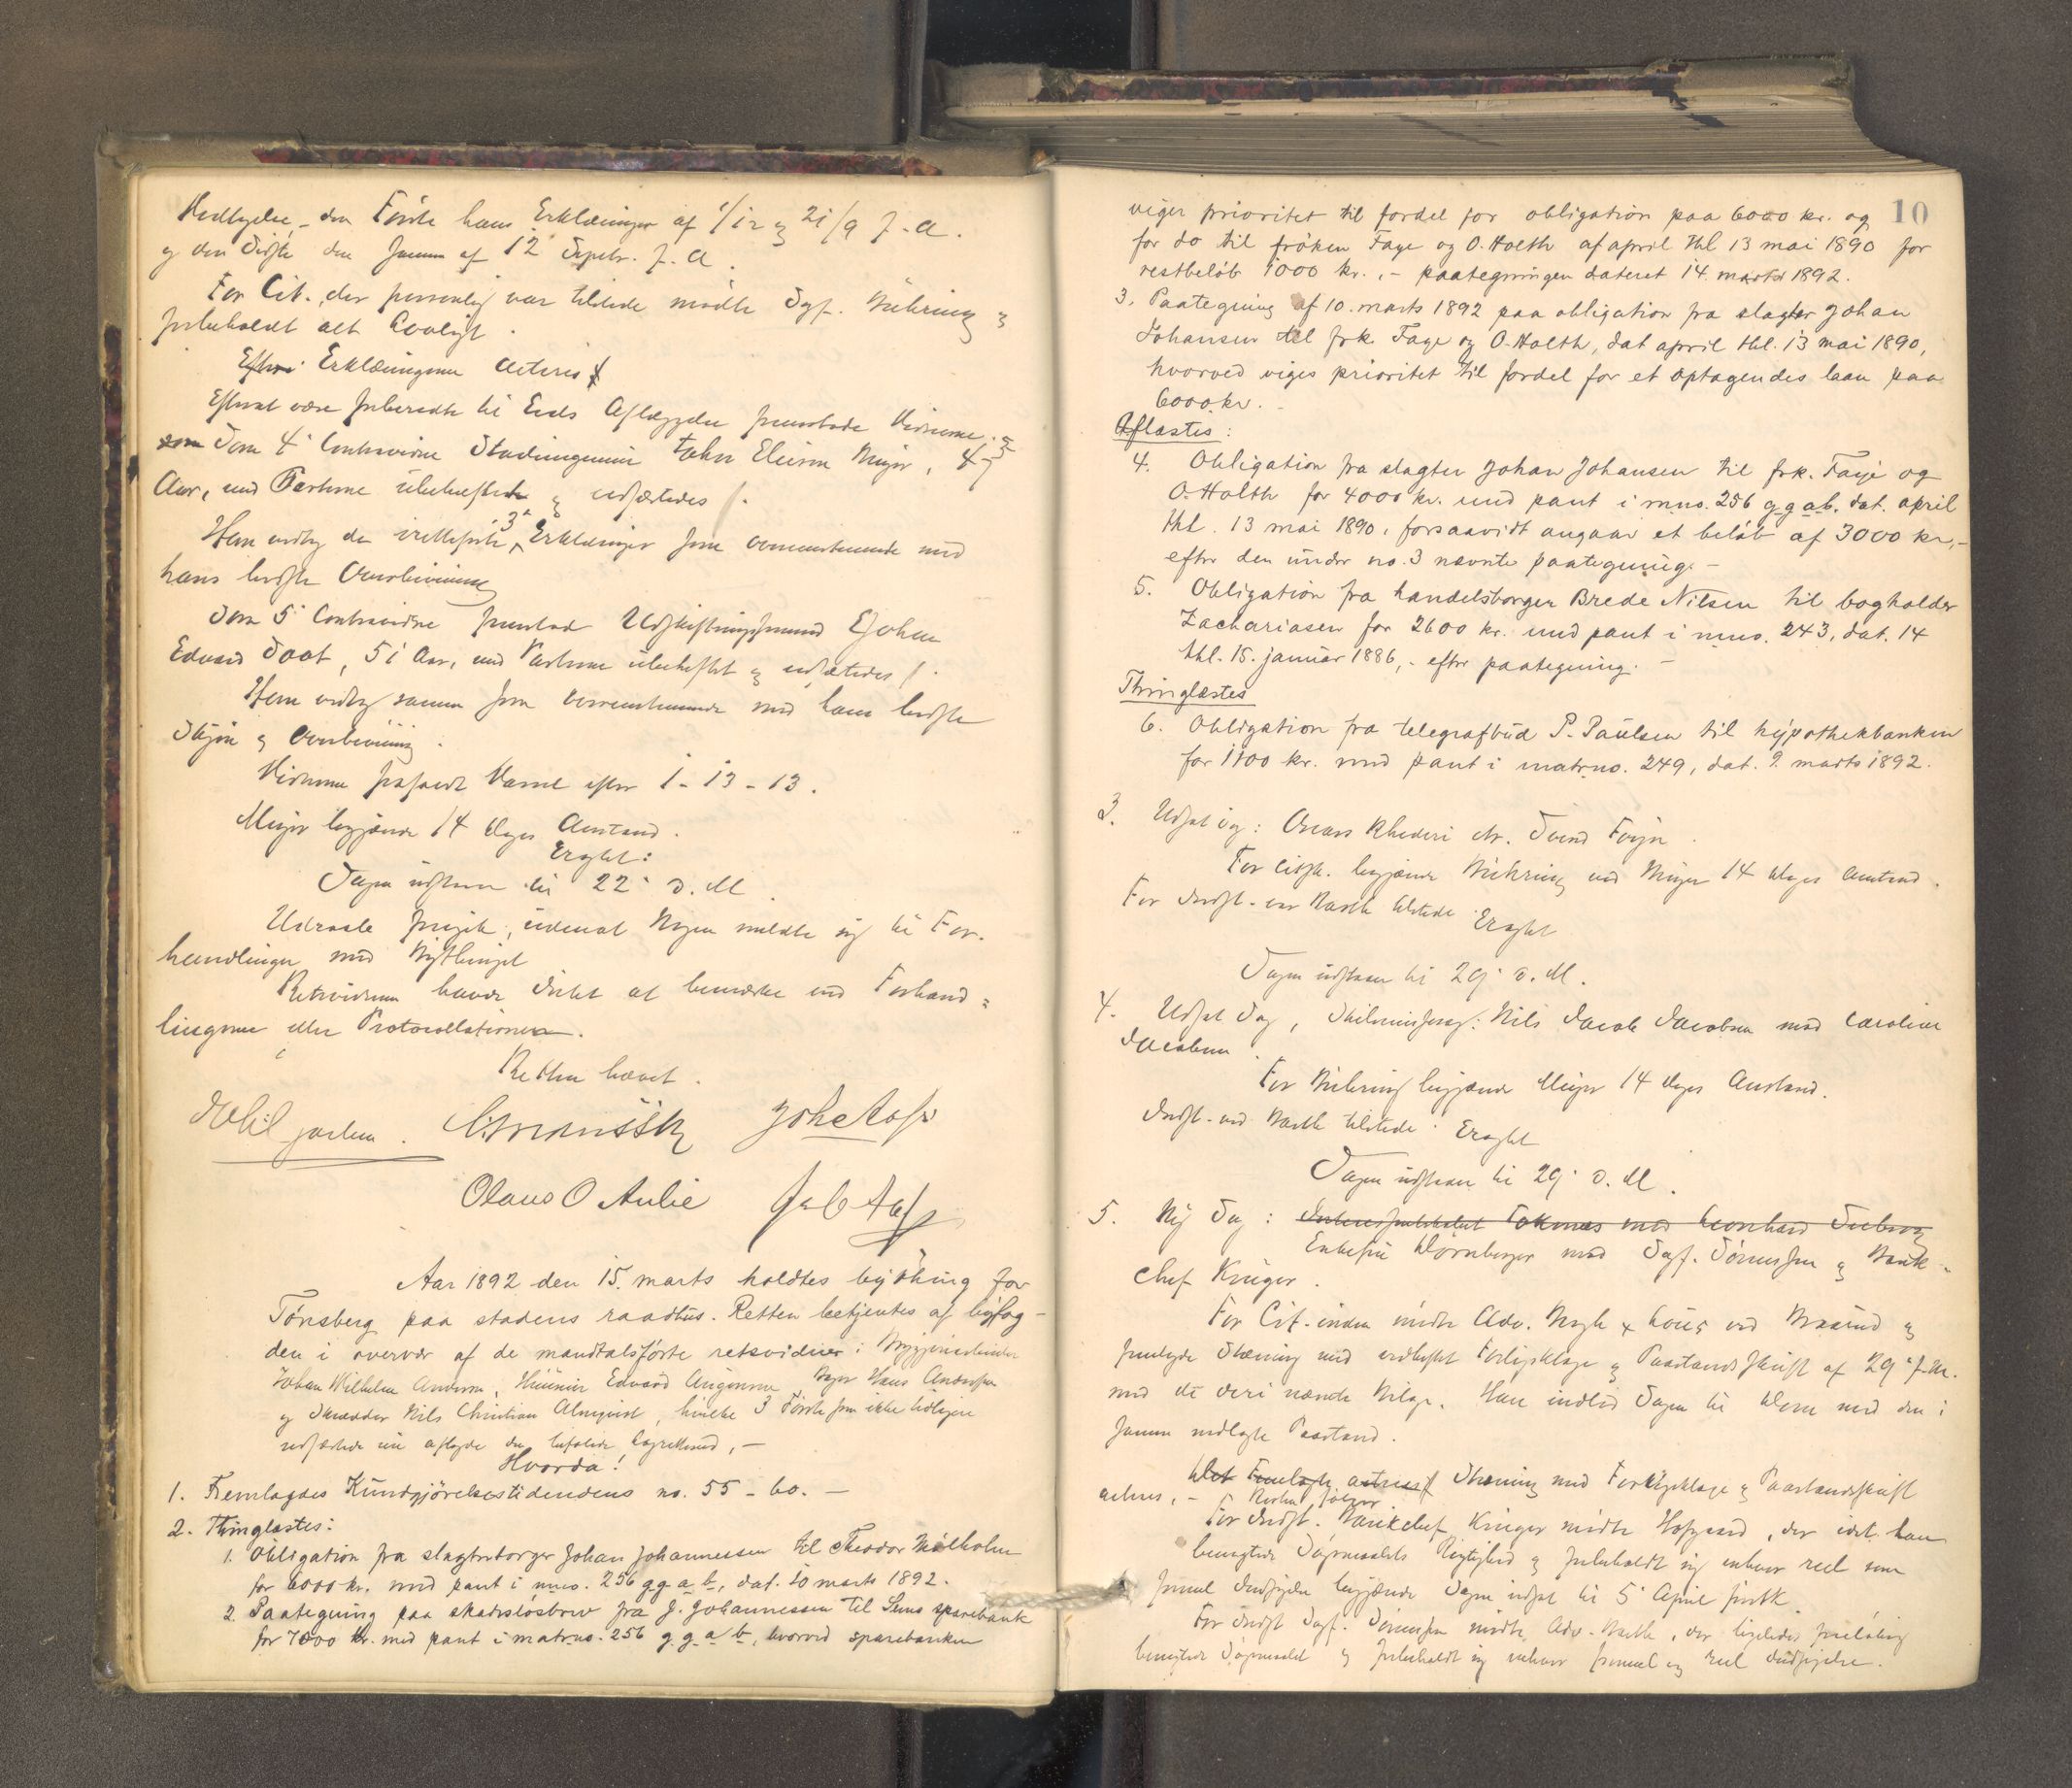 den Første hans Erklæringer af 1/12 og 21/9 f. A.
og den Sidste den Samme af 12' Septbr. f. A.
For Cit., der personlig var tilstede mødte Sagf. Bühring og
forbeholdt alt Lovligt.
Erklæringerne acteres
Efterat være forberedte til Eeds Aflæggelse fremstode Vidnerne:
som 4' Contravidne Stadsingeniør John Meyer, 47
Aar, med Parterne ubeslægtet og edfæstedes.
Han vedtog de 3' Erklæringer som overensstemmende med
hans bedste Overbeviisning
Som 5' Contravidne fremstod Udskiftningsformand Johan
Edvard Toot, 51 Aar, med Parterne ubeslægtet og edfæstedes.
Han vedtog samme som overensstemmende med hans bedste
Skjøn og Overbeviisning.
Vidnerne paastode Varsel efter 1-13-13.
Meyer begjærede 14 Dages Anstand.
Eragtet:
Sagen udstaaer til 22' d. M.
Udraab foregik, uden at Nogen meldte sig til For-
handlinger med Bythinget
Retsvidnerne havde Intet at bemærke ved Forhand-
lingerne eller Protocollationen.
Retten hævet.
Olaus O Aulie
Aar 1892 den 15. marts holdtes bything for
Tønsberg paa stadens raadhus. Retten betjentes af byfog-
den i overvær af de mandtalsførte retsvidner: Bryggeriarbeider
Johan Wilhelm Andersen, Edvard Bager Hans Andersen
og Skrædder Nils Christian Almquist, hvilke 3 Første som ikke tidligere
edfæstede nu aflagde den befalede Lagretteseed, —
Hvorda!
1. Fremlagdes Kundgjørelsestidendens no. 55 - 60. —
2. Thinglæstes:
1. Obligation fra slagterborger Johan Johannessen til Theodor Mølholm
for 6000 kr. med pant i mno. 256 g g a b, dat. 10 marts 1892.
2. Paategning paa skadesløsbrev fra J. Johannessen til Sems sparebank
for 7000 kr. med pant i matr. no. 256 g. g a b, hvorved sparebanken
10
viger prioritet til fordel for obligation paa 6000 kr. og
for do til frøken Faye og O. Holth af april thl 13 mai 1890 for
restbeløb 1000 kr., - paategningen dateret 14. marts 1892.
3. Paategning af 10. marts 1892 paa obligation fra slagter Johan
Johansen til frk. Faye og O. Holth, dat april thl. 13 mai 1890,
hvorved viges prioritet til fordel for et optagendes laan paa
6000 kr. -
Aflæstes:
4. Obligation fra slagter Johan Johansen til frk. Faye og
O. Holth for 4000 kr. med pant i mno. 256 g g a b. dat. april
thl. 13 mai 1890, forsaavidt angaar et beløb af 3000 kr, -
efter den under no. 3 nævnte paategning. -
5. Obligation fra handelsborger Brede Nilsen til bogholder
Zachariasen for 2600 kr. med pant i mno. 243, dat. 14
thl. 15. januar 1886, - efter paategning. -
Thinglæstes
6. Obligation fra telegrafbud P. Paulsen til hypothekbanken
for 1100 kr. med pant i matr. no. 249, dat. 9. marts 1892.
3. Udsat Sag: Oscars Rhederi ctr. Svend Foyn.
For Citst. begjærede Bühring ved Meyer 14 Dages Anstand.
For Indst. var Barth tilstede. Eragtet
Sagen udstaaer til 29' d. M.
4. Udsat Sag, Skilsmissesag: Nils Jacob Jacobsen mod Caroline
Jacobsen.
For Bühring begjærede Meyer 14 Dages Anstand.
Indst. ved Barth tilstede. Eragtet
Sagen udstaaer til 29' d. M.
5. Ny Sag:
Enkefru Dørnberger mod Sagf. Sørenssen og Bank-
chef Krüger.
For Cit.inden mødte Adv. ved og
fremlagde Stævning med vedhæftet Forligsklage og Paastandsskrift af 29' f. M.
med de deri nævnte Bilage. Han indlod Sagen til Dom med den i
samme nedlagte Paastand.
Stævning med Forligsklage og Paastandsskrift
acteres, -
For Indst. Bankchef Krüger mødte Hofgaard, der idet han
benægtede Søgsmaalets Rigtighed og forbeholdt sig enhver reel som
formel Indsigelse begjærede Sagen udsat til 5' April førstk.
For Indst Sagf. Sørenssen mødte Adv. Barth, der ligeledes foreløbig
benægtede Søgsmaalet og forbeholdt sig enhver formel og reel Indsigelse.